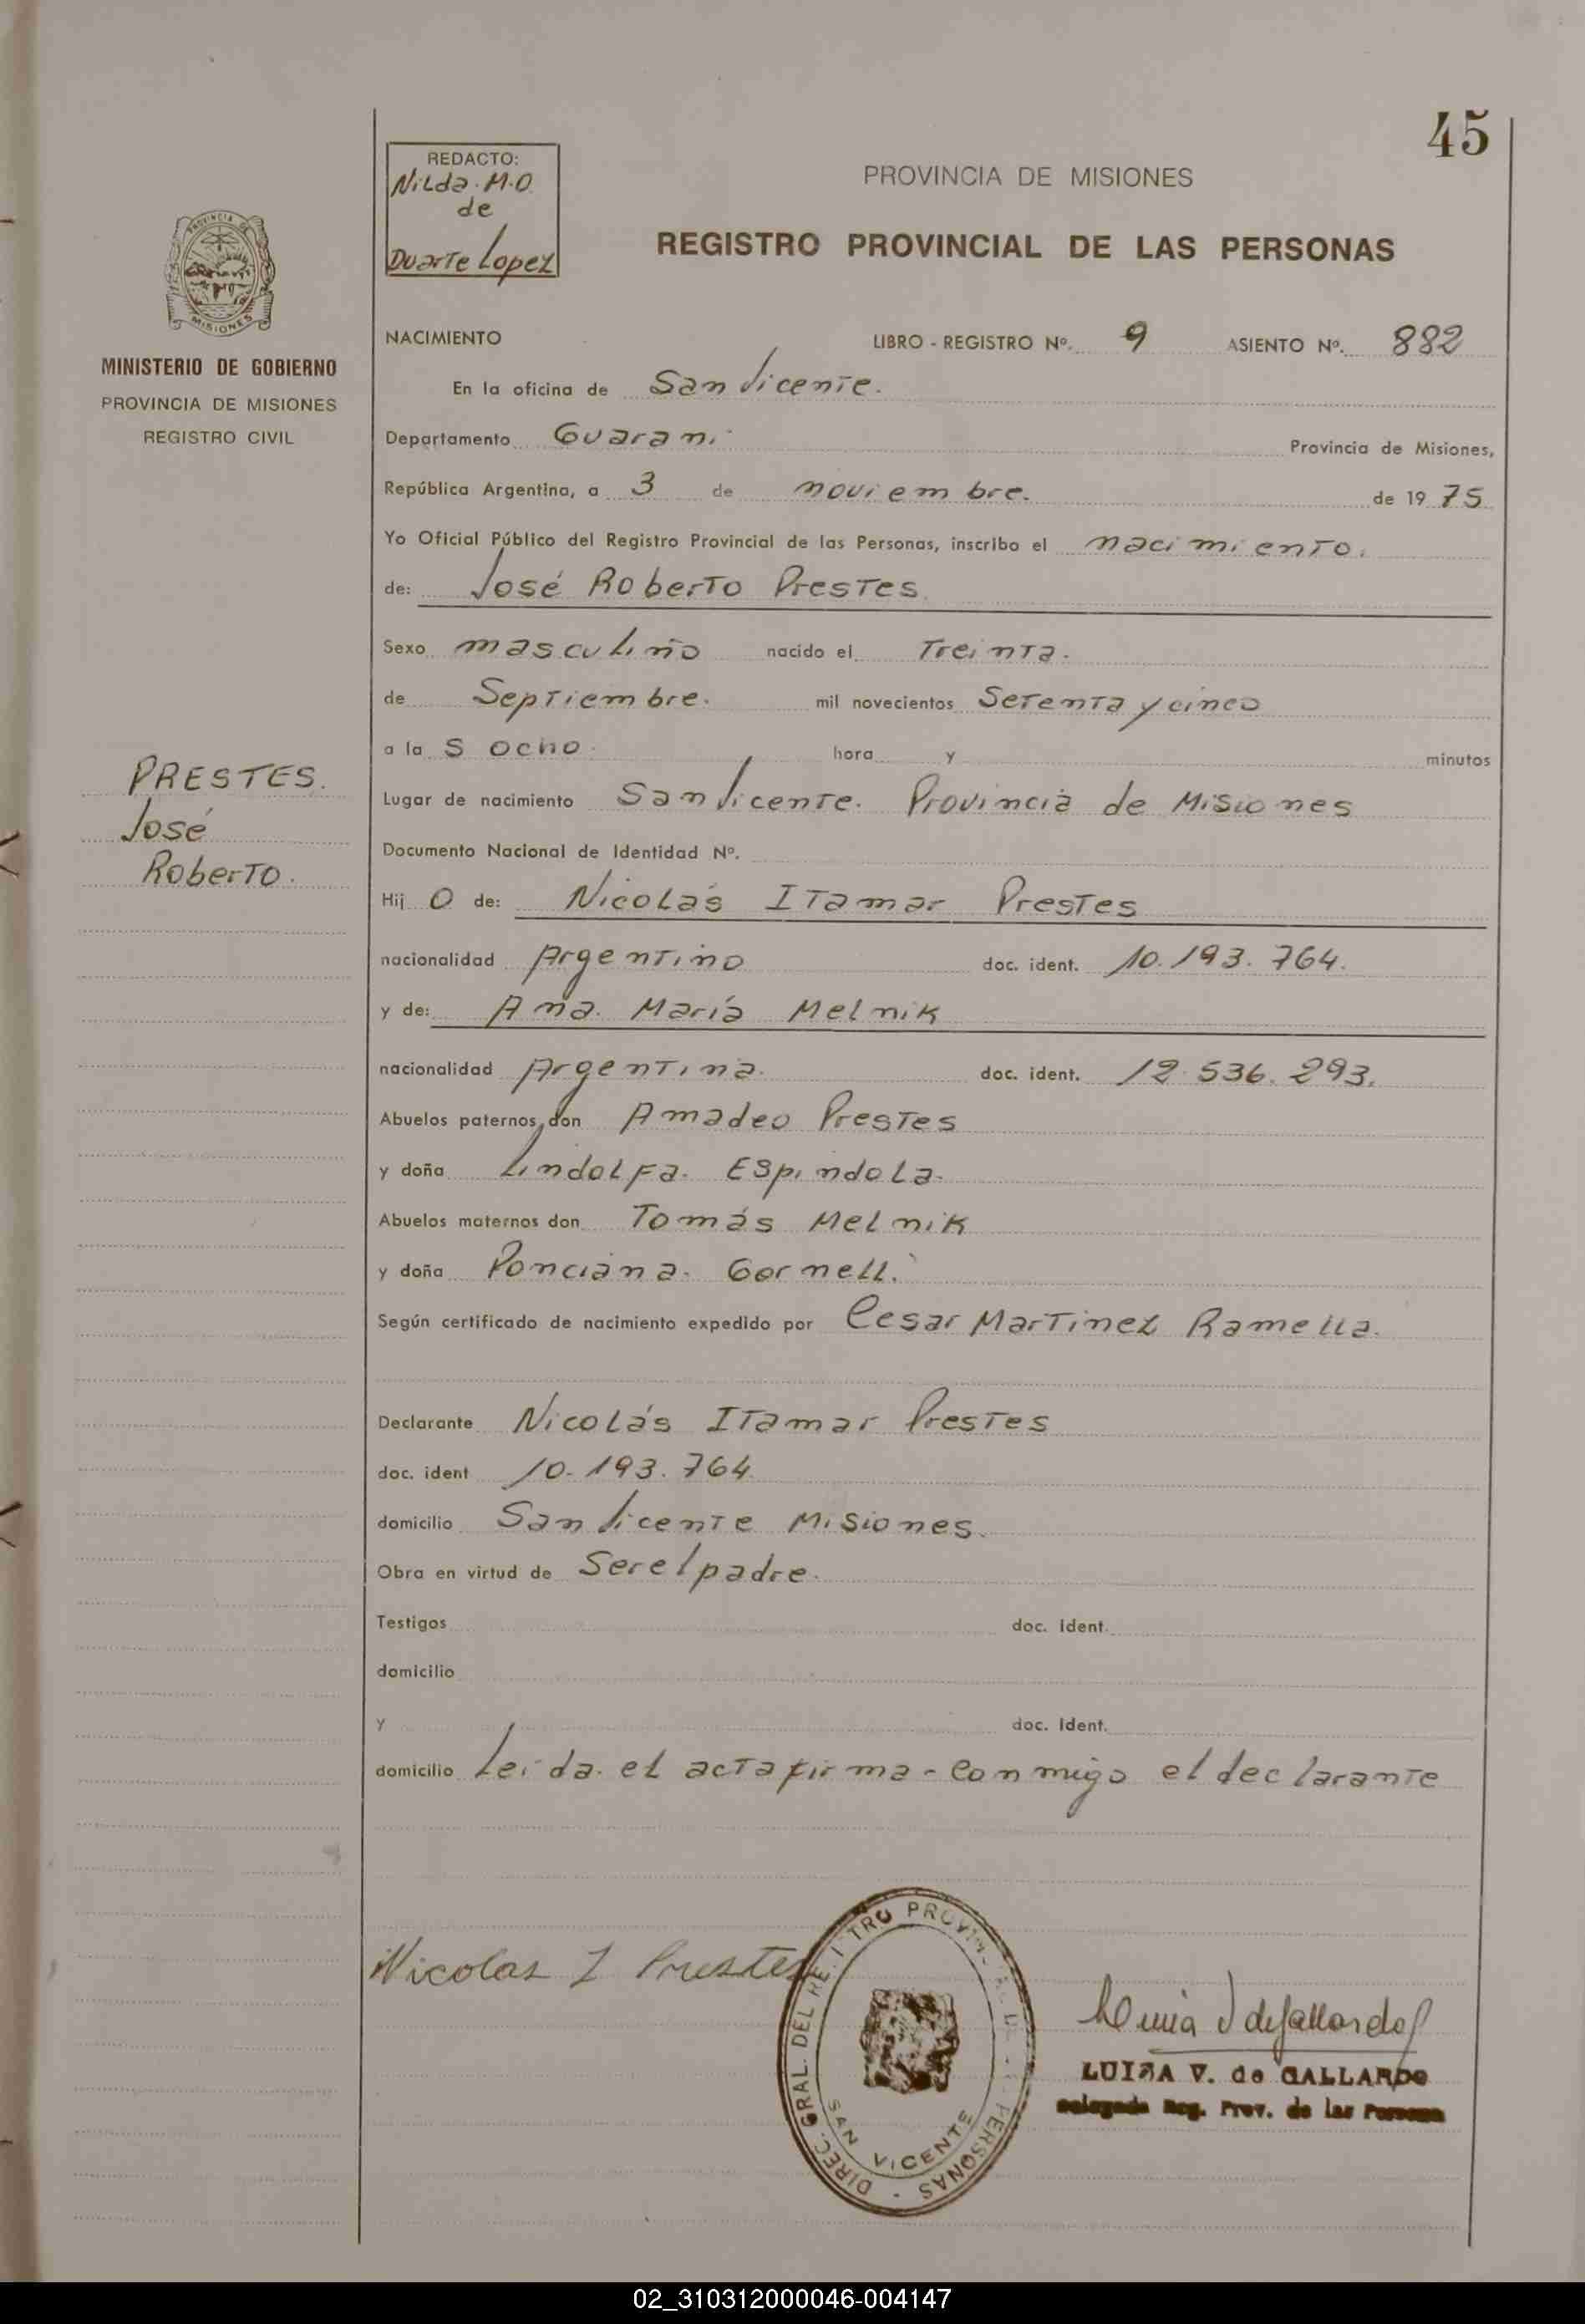 45
REDACTO:
Nilda. M.O.
de
Duarte Lopez
PROVINCIA DE MISIONES
REGISTRO PROVINCIAL DE LAS PERSONAS
PROVINCIA DE
MISIONES
MINISTERIO DE GOBIERNO
PROVINCIA DE MISIONES
REGISTRO CIVIL
NACIMIENTO LIBRO - REGISTRO Nº. 9 ASIENTO Nº. 882
En la oficina de San Vicente.
Departamento Guaraní Provincia de Misiones,
República Argentina, a 3 de noviembre. de 19 75
Yo Oficial Público del Registro Provincial de las Personas, inscribo el nacimiento.
de: José Roberto Prestes.
Sexo masculino nacido el Treinta.
de Septiembre. mil novecientos Setenta y cinco
a la s ocho. hora y minutos
PRESTES.
José
Roberto.
Lugar de nacimiento San Vicente. Provincia de Misiones
Documento Nacional de Identidad Nº.
Hij o de: Nicolás Itamar Prestes
nacionalidad Argentino doc. ident. 10.193.764.
y de: Ana. María Melnik
nacionalidad Argentina. doc. ident. 12.536.293.
Abuelos paternos, don Amadeo Prestes
y doña Lindolfa. Espindola.
Abuelos maternos don Tomás Melnik
y doña Ponciana. Gornell.
Según certificado de nacimiento expedido por Cesar Martinez Ramella.
Declarante Nicolás Itamar Prestes
doc. ident 10.193.764
domicilio San Vicente Misiones.
Obra en virtud de Ser el padre.
Testigos doc. Ident.
domicilio
y doc. Ident.
domicilio Leída. el acta firma - Conmigo el declarante
Nicolas I Prestes
DIREC. GRAL. DEL REGITRO PROVIN PERSONAS -
SAN VICENTE
de Gallardo
LUISA V. de GALLARDO
Delegada Reg. Prov. de las Personas
02_310312000046-004147